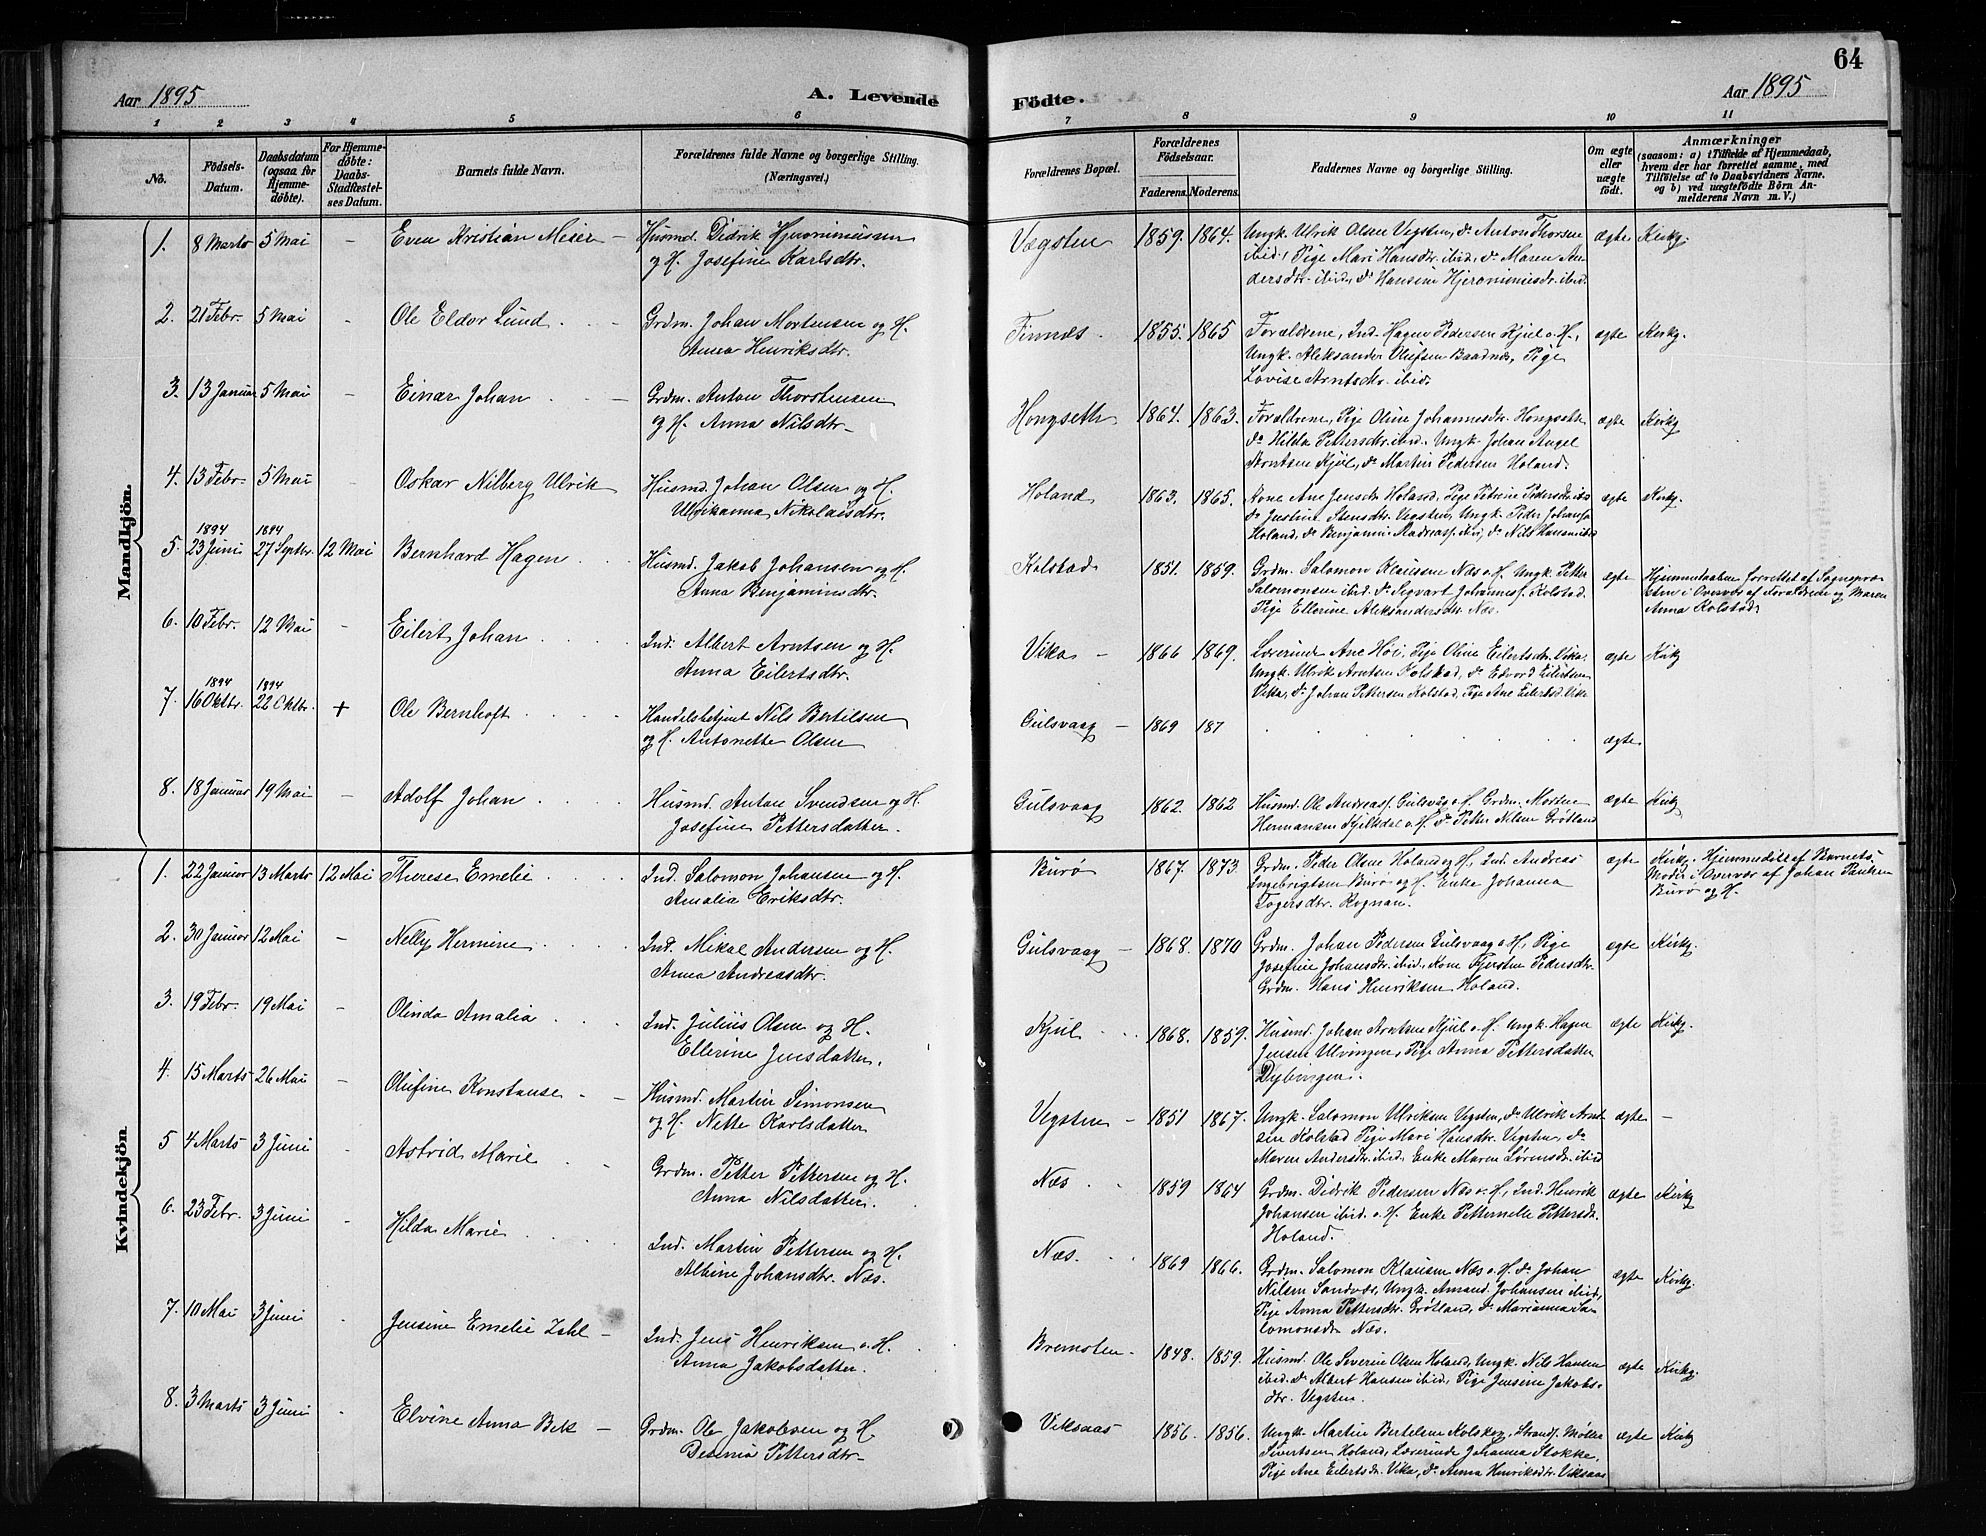 64
Aar 1895
A. Levende
Födte.
Aar 1895
1 2 3 4 5 6 7 8 9 10 11
No.
Födsels-
Datum.
Daabsdatum
(ogsaa for
Hjemme-
döbte).
For Hjemme-
döbte:
Daabs-
Stadfæstel-
ses Datum.
Barnets fulde Navn.
Forældrenes fulde Navne og borgerlige Stilling.
(Næringsvei.)
Forældrenes Bopæl.
Forældrenes
Födselsaar.
Faderens. Moderens.
Faddernes Navne og borgerlige Stilling.
Om ægte
eller
uægte
födt.
Anmærkninger
(saasom: a) i Tilfælde af Hjemmedaab,
hvem der har forrettet samme, med
Tilföielse af to Daabsvidners Navne,
og b) ved uægtefödte Börn An-
melderens Navn m. V.)
Mandkjön.
1. 8 Marts 5 Mai - Even Kristian Meier - Husmd. Didrik Hjeronimussen
og H. Josefine Karlsdtr.
Vægsten 1859. 1864. Ungk. Ulrik Olsen Vegsten, do Anton Thorsen
ibid, Pige Mari Hansdtr. ibid, do Maren An-
dersdtr. ibid, do Hansine Hjeronimusdtr. ibid.
ægte Kirkg.
2. 21 Febr. 5 Mai - Ole Eldor Lund Grdm. Johan Mortensen og H.
Anna Henriksdtr.
Finnæs 1855. 1865 Forældrene, Ind. Hagen Pedersen Kjul o. H.,
Ungk. Aleksander Olufsen Baadnes, Pige
Lovise Arntsdtr. ibid.
ægte Kirkg.
3. 13 Januar 5 Mai - Einar Johan Grdm. Anton Thorstensen
og H. Anna Nilsdtr.
Hongseth 1864. 1863. Forældrene, Pige Oline Johannesdtr. Hongseth
do Hilda Pettersdtr. ibid. Ungk. Johan Angel
Arntsen Kjul, do Martin Pedersen Holand.
ægte Kirkg
4. 13 Febr. 5 Mai - Oskar Nilberg Ulrik Husmd. Johan Olsen og H.
Ulrikanna Nikolaisdtr.
Holand 1863. 1865. Kone Ane Jensdtr Holand, Pige Petrine Pedersdtr. ibid
do Justine Stensdtr. Vegsten, Ungk. Peder Johansen
Holand, do Benjamin Andreass. ibid, do Nils Hansen ibid
ægte Kirkg.
1894 1894
5. 23 Juni 27 Septbr. 12 Mai Bernhard Hagen Husmd. Jakob Johansen og H.
Anna Benjaminsdtr.
Kolstad 1851. 1859. Grdm. Salomon Klausen Næs o. H. Ungk. Petter
Salomonsen ibid. do Sigvart Johanness. Kolstad.
Pige Ellerine Aleksandersdtr. Næs.
ægte Hjemmedaaben forrettet af Sognepræ-
sten i Overvær af Forældrene og Maren
Anna Kolstad.
6. 10 Febr. 12 Mai - Eilert Johan Ind. Albert Arntsen og H.
Anna Eilertsdtr.
Vika 1866 1869. Lærerinde Ane Høi, Pige Oline Eilertsdtr. Vika,
Ungk. Ulrik Arntsen Kolstad, do Edvard Eilertsen
Vika, do Johan Pettersen Kolstad, Pige Ane Eilertsd. Vika
ægte Kirkg
1894 1894
7. 16 Oktbr. 22 Oktbr. + Ole Bernhoft Handelsbetjent Nils Bertilsen
og H. Antonette Olsen
Gulsvaag 1869 187
ægte
8. 18 Januar 19 Mai - Adolf Johan Husmd. Anton Svendsen og H.
Josefine Pettersdatter.
Gulsvaag 1862. 1862 Husmd. Ole Andreass. Gulsvåg o. H. Grdm. Morten
Hermansen Hjeltdal o. H. do Petter Nilsen Grøtland
ægte Kirkg
Kvindekjön.
1. 22 Januar 13 Marts 12 Mai Therese Emelie Ind. Salomon Johansen og H.
Amalia Eriksdtr.
Burø 1867. 1873. Grdm. Peder Olsen Holand og H., Ind. Andreas
Ingebrigtsen Burø og H. Enke Johanna
Togersdtr. Rognan.
ægte Kirkg. Hjemmedøbt af Barnets
Moder i Overvær af Johan Paulsen
Burø og H.
2. 30 Januar 12 Mai - Nelly Hermine Ind. Mikal Andersen og H.
Anna Andreasdtr.
Gulsvaag 1868. 1870 Grdm. Johan Pedersen Gulsvaag o. H., Pige
Josefine Johansdtr. ibid, Kone Kjersten Pedersdtr.
Grdm. Hans Henriksen Holand.
ægte Kirkg.
3. 19 Febr. 19 Mai - Olinda Amalia Ind. Julius Olsen og H.
Ellerine Jensdatter.
Kjul 1868. 1859. Husmd. Johan Arntsen Kjul o. H. Ungk. Hagen
Jensen Ulvingen, Pige Anna Pettersdatter
Dybingen.
ægte Kirkg.
4. 15 Marts 26 Mai - Olufine Konstanse - Husmd. Martin Simonsen
og H. Nette Karlsdatter
Vegsten 1851 1867. Ungk. Salomon Ulriksen Vegsten, do Ulrik Arnt-
sen Kolstad Pige Mari Hansdtr. Vegsten, do
Maren Andersdtr. ibid, Enke Maren Lorensdr. ibid
ægte -
5 4 Marts 3 Juni Astrid Marie Grdm. Petter Pettersen og H.
Anna Nilsdatter.
Næs 1859 1864 Grdm. Didrik Pedersen Næs o. H., Ind. Henrik
Johansen ibid. o. H. Enke Petternelle Pettersdtr.
Holand.
ægte Kirkg
6. 23 Febr. 3 Juni - Hilda Marie Ind. Martin Pettersen og H.
Albine Johansdtr. Næs.
Næs. 1869 1866. Grdm. Salomon Klausen Næs o. H. do Johan
Nilsen Sandvær, Ungk. Amand Johansen ibid,
Pige Anna Pettersdtr. Grøtland, do Marianna Sa-
lomonsdtr Næs.
ægte Kirkg.
7. 10 Mai 3 Juni - Jensine Emelie Zahl - Ind. Jens Henriksen o. H.
Anna Jakobsdatter.
Bremsten 1848. 1859. Husmd. Ole Severin Olsen Holand, Ungk. Nils Hansen
ibid. do Albert Hansen ibid, Pige Jensine Jakobs-
dtr. Vegsten.
ægte Kirkg.
8. 3 Marts 3 Juni - Elvine Anna Bek - Grdm. Ole Jakobsen og H.
Desenia Pettersdtr
Viksaas 1856. 1856. Ungk. Martin Bertelsen Kolskog, Strands. Møller
Sivertsen Holand, Lærerinde Johanna Stokke,
Pige Ane Eilertsdtr. Vika, do Anna Henriksdtr. Viksaas
ægte Kirkg